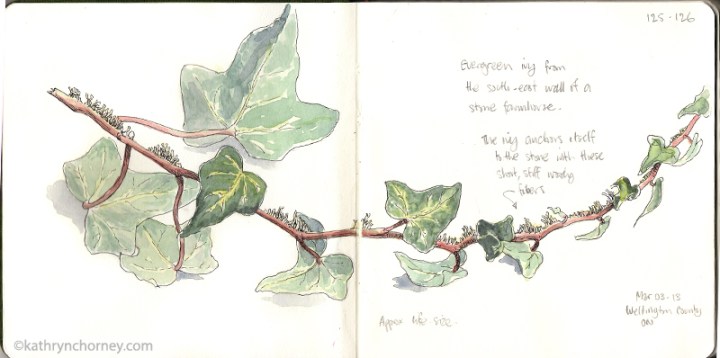 125-126
Evergreen ivy from
the south-east wall of a
stone farmhouse.
The ivy anchors itself
to the stone with these
short, stiff woody
fibers
Approx life size.
Mar 03-18
Wellington County
ON
©kathrynchorney.com